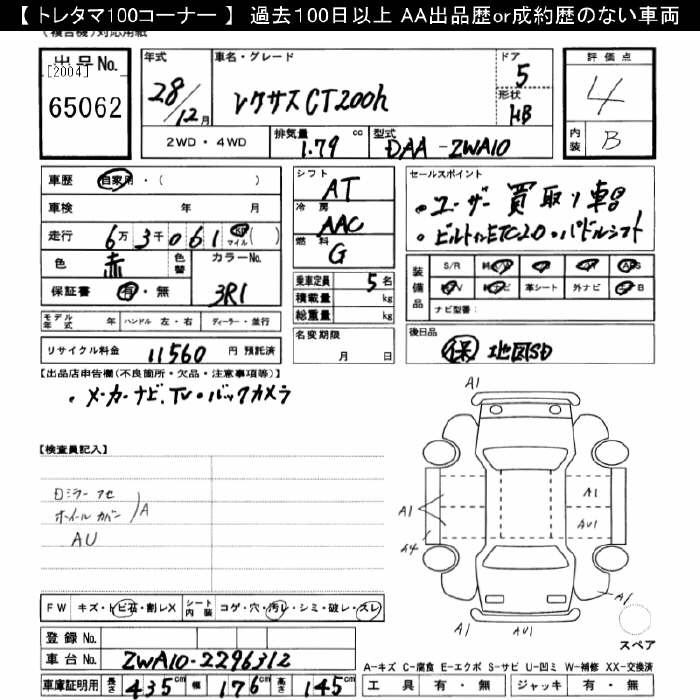 【 トレタマ100コーナー 】 過去100日以上 AA出品歴or成約歴のない車両
(複合機)対応用紙
出品No.
[2004]
65062
年式
28/12月
車名・グレード
レクサス CT200h
ドア
5
形状
HB
評価点
4
内装
B
2WD・4WD
排気量
1.79 cc
型式
DAA-ZWA10
車歴 自家用・( )
車検 年 月
走行 6万3千061 マイル( )
色 赤 色替
カラーNo.
3R1
保証書 有・無
シフト
AT
冷房
AAC
燃料
G
乗車定員 5名
積載量 kg
総重量 kg
セールスポイント
・ユーザー買取り車
・ビルトインETC2.0・パドルシフト
装備品
S/R
革シート 外ナビ
ナビ型番:
モデル年式 年 ハンドル 左・右 ディーラー・並行
リサイクル料金 11560 円 預託済
名変期限
月 日
後日品
保 地図SD
【出品店申告欄(不良箇所・欠品・注意事項等)】
・メーカーナビ.TV・バックカメラ
【検査員記入】
ホイールカバー
A
AU
A1
A1
A1
AU1
A4
A1
A1
AU1
スペア
FW キズ・トビ石・割レX シート内装 コゲ・穴・汚レ・シミ・破レ・スレ
登録No.
車台No. ZWA10-2296312
車庫証明用 長さ 435cm 幅 176cm 高さ 145cm
A-キズ C-腐食 E-エクボ S-サビ U-凹ミ W-補修 XX-交換済
工具 有・無 ジャッキ 有・無